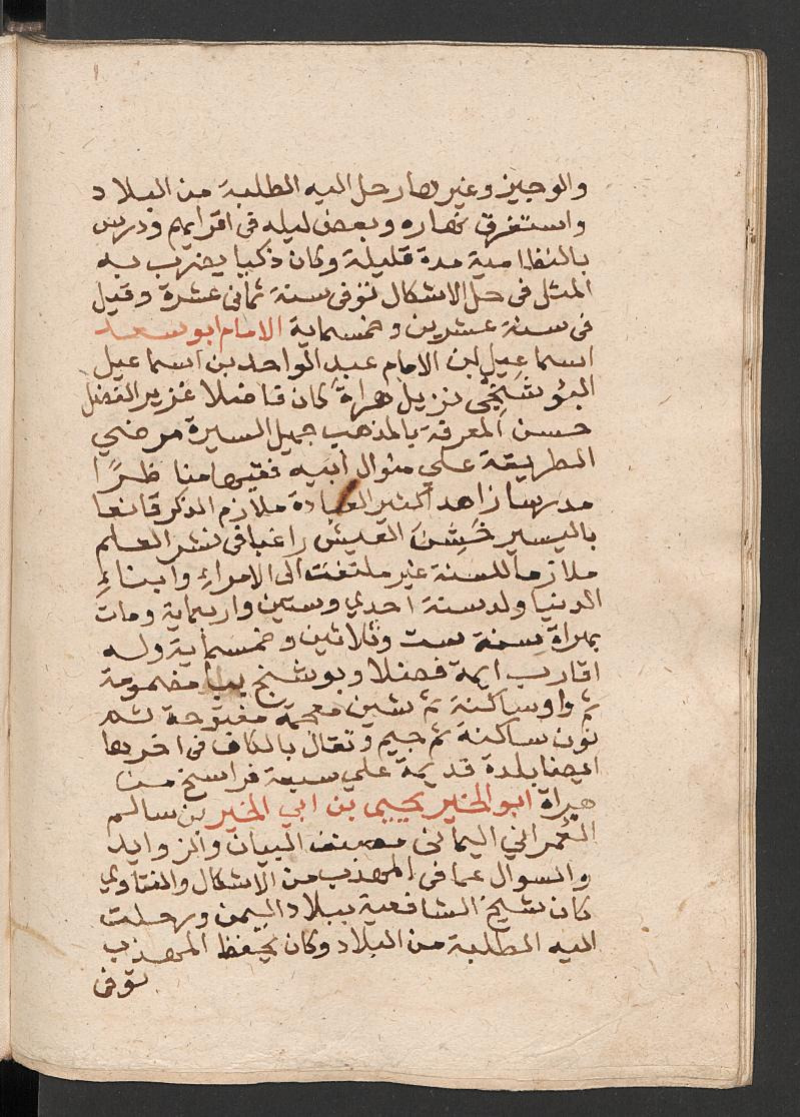 والوجيز وغيرها رحل اليه الطلبة من البلاد
واستغرق نهاره وبعض ليله في اقرايهم ودرس
بالنظامية مدة قليلة وكان ذكيا يضرب به
المثل في حل الاشكال توفي سنة ثماني عشرة وقيل
في سنة عشرين وخمسماية الامام ابو سعد
اسماعيل ابن الامام عبد الواحد بن اسماعيل
البُوشَنْجي نزيل هراة كان فاضلا غزير الفضل
حسن المعرفة بالمذهب جميل السيرة مرضي
الطريقة علي منوال ابيه فقيها مناظرًا
مدرسا زاهدا كثير العبادة ملازم الذكر قانعا
باليسير خَشِنَ العيش راغبا في نشر العلم
ملازما للسنة غير ملتفت الى الامراءِ وابناءِ
الدنيا ولد سنة احدي وستين واربماية ومات
بهراة سنة ست وثلاثين وخمسماية وله
اقارب ايمة فضلا وبوشنج ببا مضمومة
ثم واو ساكنة ثم شين معجمة مفتوحة ثم
نون ساكنة ثم جيم وتقال بالكاف في اخرها
ايضا بلدة قديمة علي سبعة فراسخ من
هراة ابو الخير يحيى بن ابي الخير بن سالم
العُمراني اليماني مصنف البيان والزوايد
والسوال عما في المهذب من الاشكال والفتاوي
كان شيخ الشافعية ببلاد اليمن ورحلت
اليه الطلبة من البلاد وكان يحفظ المهذب
توفي